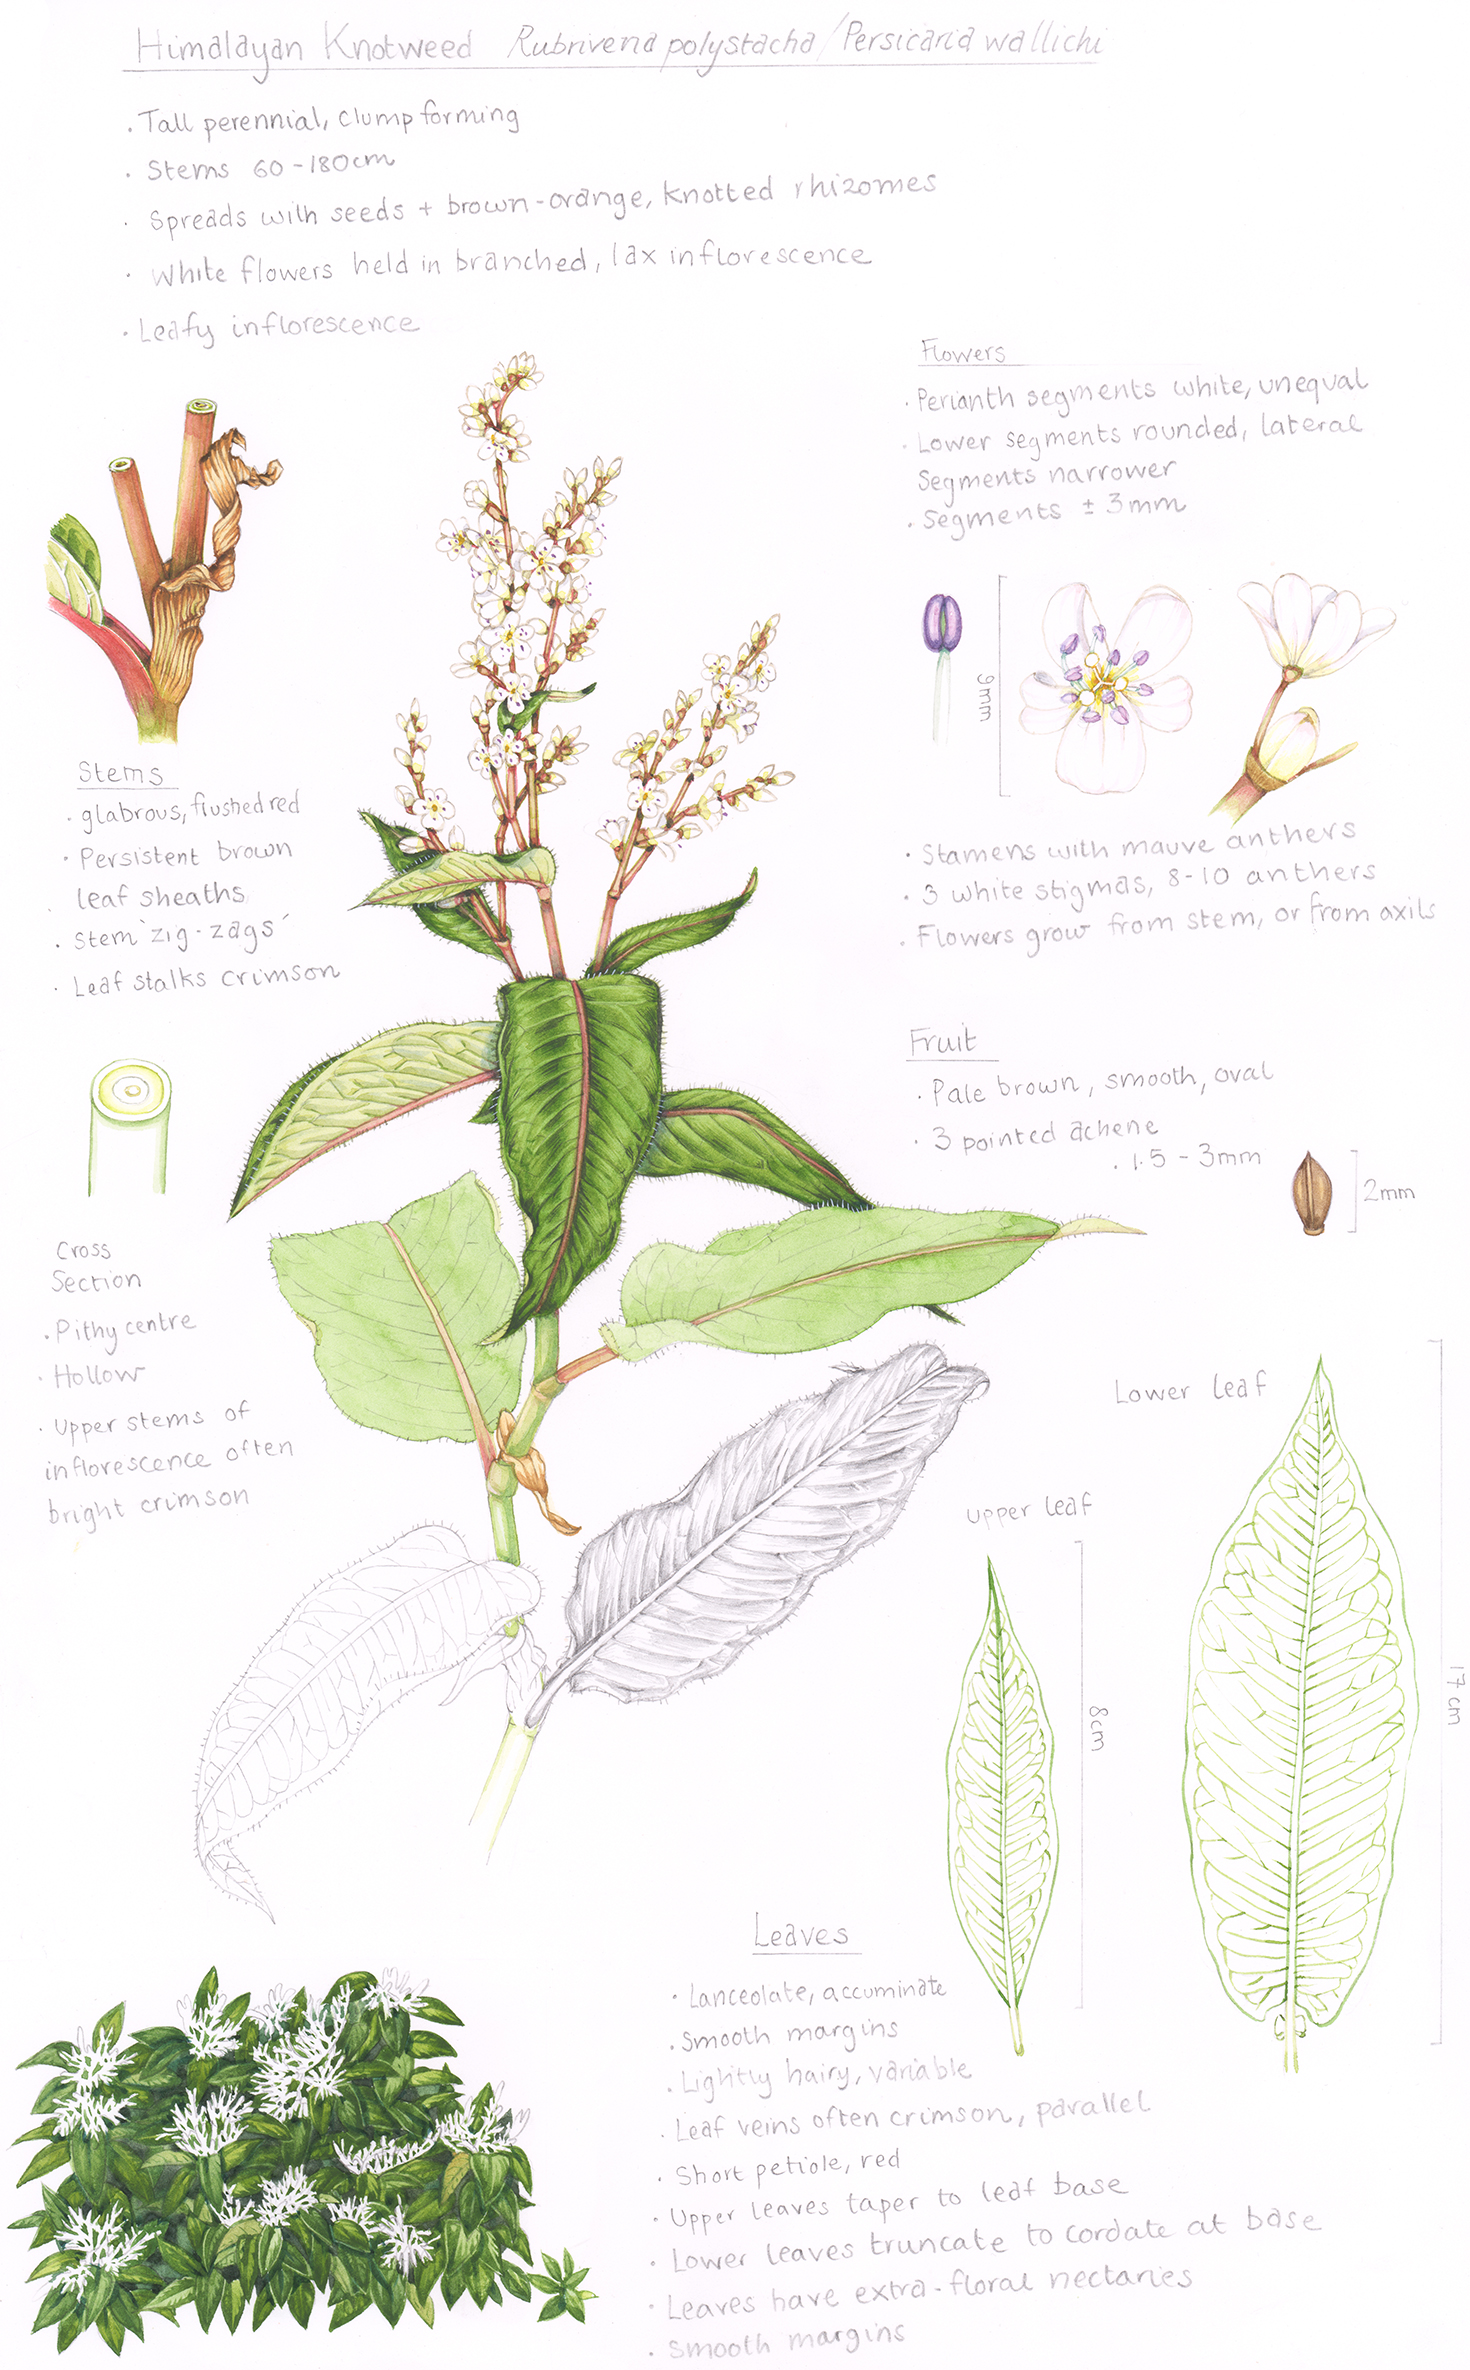 Himalayan Knotweed Rubrivena polystacha/Persicaria wallichi
· Tall perennial, clump forming
· Stems 60-180cm
· Spreads with seeds + brown-orange, knotted rhizomes
· White flowers held in branched, lax inflorescence
· Leafy inflorescence
Flowers
· Perianth segments white, unequal
· Lower segments rounded, lateral
segments narrower
· Segments ± 3mm
9mm
· Stamens with mauve anthers
· 3 white stigmas, 8-10 anthers
· Flowers grow from stem, or from axils
Stems
· glabrous, flushed red
· Persistent brown
leaf sheaths
· Stem 'zig-zags'
· Leaf stalks crimson
Cross
Section
· Pithy centre
· Hollow
· Upper stems of
inflorescence often
bright crimson
Fruit
· Pale brown, smooth, oval
· 3 pointed achene
· 1.5 - 3mm
2mm
Lower leaf
17 cm
upper leaf
8cm
Leaves
· Lanceolate, accuminate
· Smooth margins
· Lightly hairy, variable
· Leaf veins often crimson, parallel
· Short petiole, red
· Upper leaves taper to leaf base
· Lower leaves truncate to cordate at base
· Leaves have extra-floral nectaries
· Smooth margins